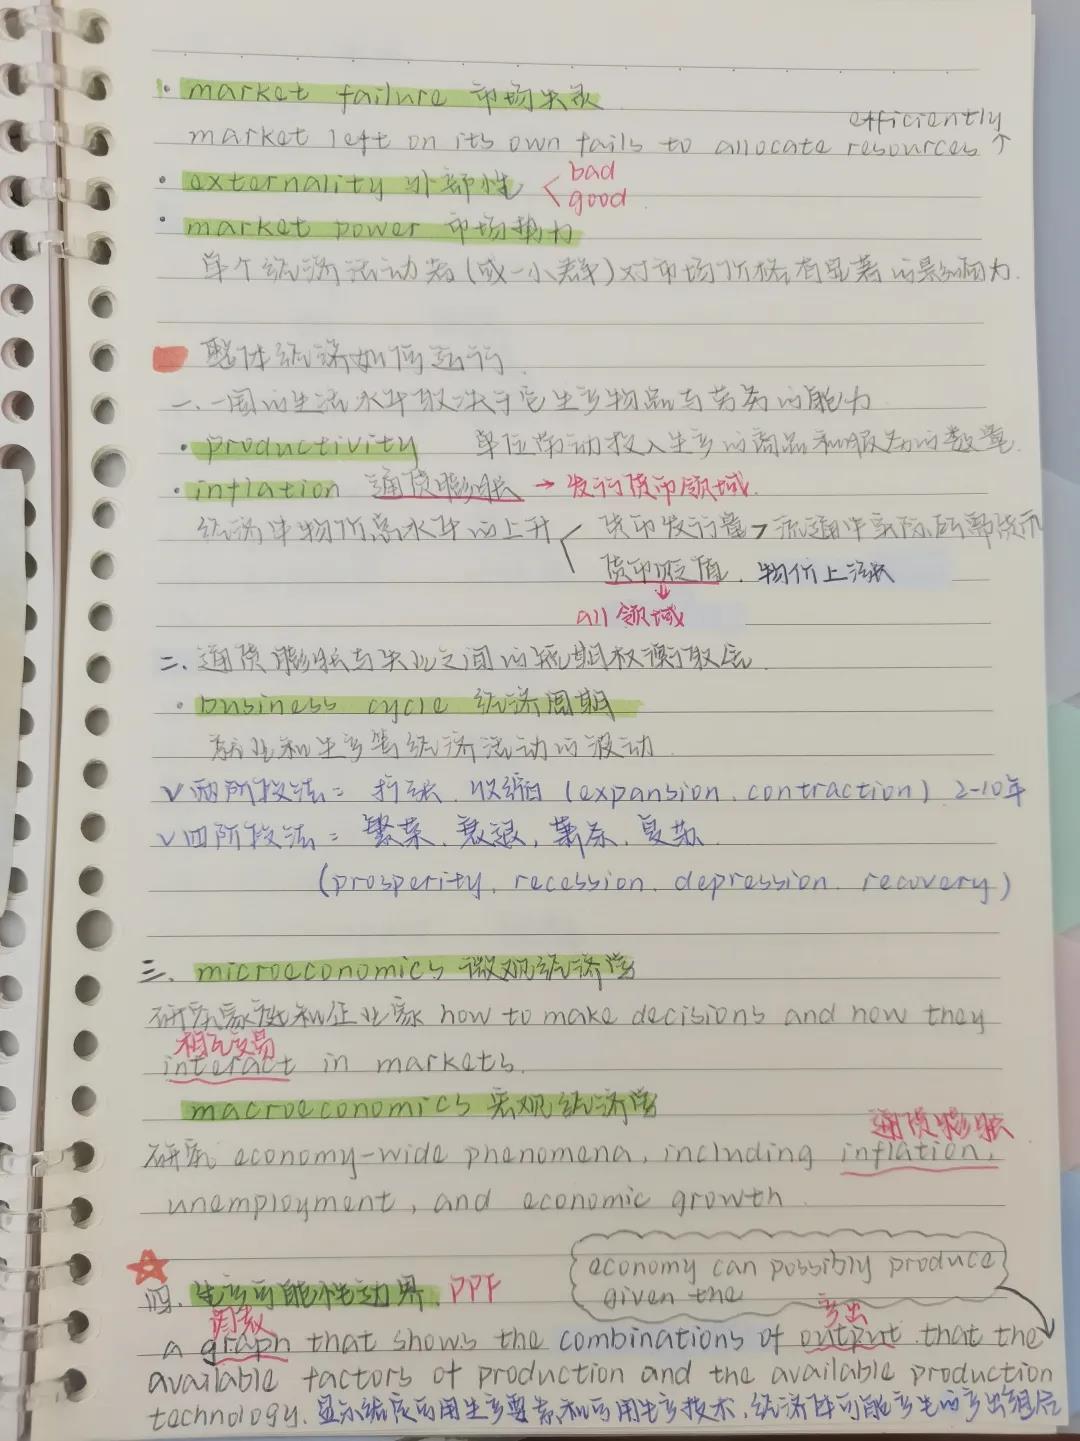 · market failure 市场失灵
efficiently
market left on its own fails to allocate resources ↑
· externality 外部性 < bad
good
· market power 市场势力
单个经济活动者(或一小群)对市场价格有显著的影响力.
整体经济如何运行.
一、一国的生活水平取决于它生产物品与劳务的能力
· productivity 单位劳动投入生产的商品和服务的数量.
· inflation 通货膨胀 → 发行货币领域.
经济中物价总水平的上升 < 货币发行量 > 流通中实际所需货币
货币贬值. 物价上涨
↓
all 领域
二、通货膨胀与失业之间的短期权衡取舍
· business cycle 经济周期
就业和生产等经济活动的波动.
√ 两阶段法: 扩张. 收缩 (expansion. contraction) 2-10年
√ 四阶段法: 繁荣. 衰退, 萧条. 复苏.
(prosperity. recession. depression. recovery)
三、microeconomics 微观经济学
研究家庭和企业家 how to make decisions and how they
相互交易
interact in markets.
macroeconomics 宏观经济学
通货膨胀
研究 economy-wide phenomena, including inflation,
unemployment, and economic growth.
economy can possibly produce
given the
四、生产可能性边界. PPF
函数 产出
a graph that shows the combinations of output that the
available factors of production and the available production
technology. 显示给定可用生产要素和可用生产技术, 经济体可能产生的产出组合